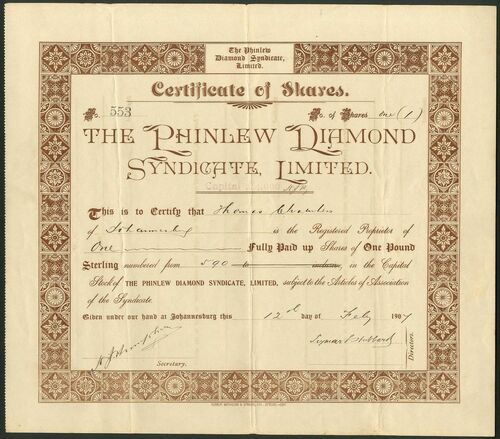 The Phinlew
Diamond Syndicate,
Limited.
Certificate of Shares.
No. 553 No. of Shares one (1)
THE PHINLEW DIAMOND
SYNDICATE, LIMITED.
Capital
This is to Certify that Thomas
of Johannesburg is the Registered Proprietor of
One Fully Paid up Shares of One Pound
Sterling numbered from 590 to inclusive, in the Capital
Stock of THE PHINLEW DIAMOND SYNDICATE, LIMITED, subject to the Articles of Association
of the Syndicate.
Given under our hand at Johannesburg this 12th day of Feby 1907
Secretary.
Directors.